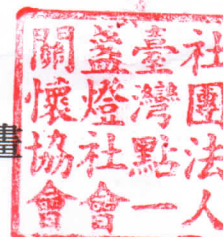 社團法人
臺灣點一
盞燈社會
關懷協會
畫